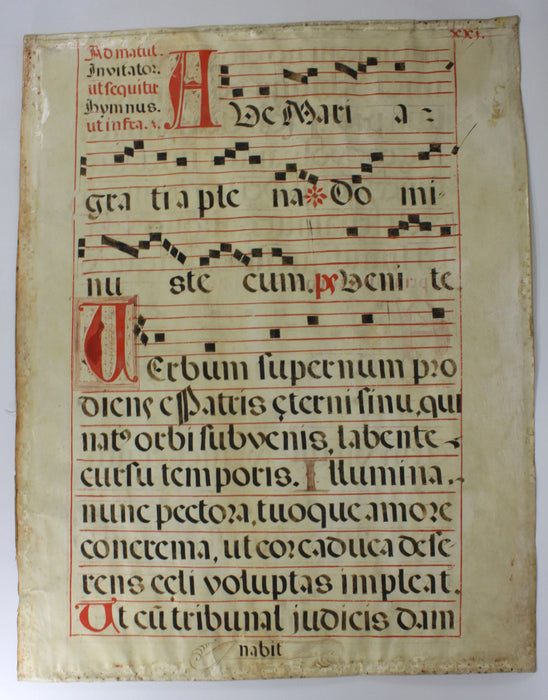 xxj.
Ad matut.
Invitator.
ut sequitur
hymnus.
ut infra.3.
AVe Mari a
gra ti a ple na Do mi-
nu ste cum. ps Veni te.
VErbum supernum pro
diens e Patris ęterni sinu, qui
nat⁹ orbi subvenis, labente
cursu temporis. Illumina
nunc pectora, tuoque amore
concrema, ut cor caduca dese-
rens cęli voluptas impleat.
Ut cū tribunal judicis dam
nabit